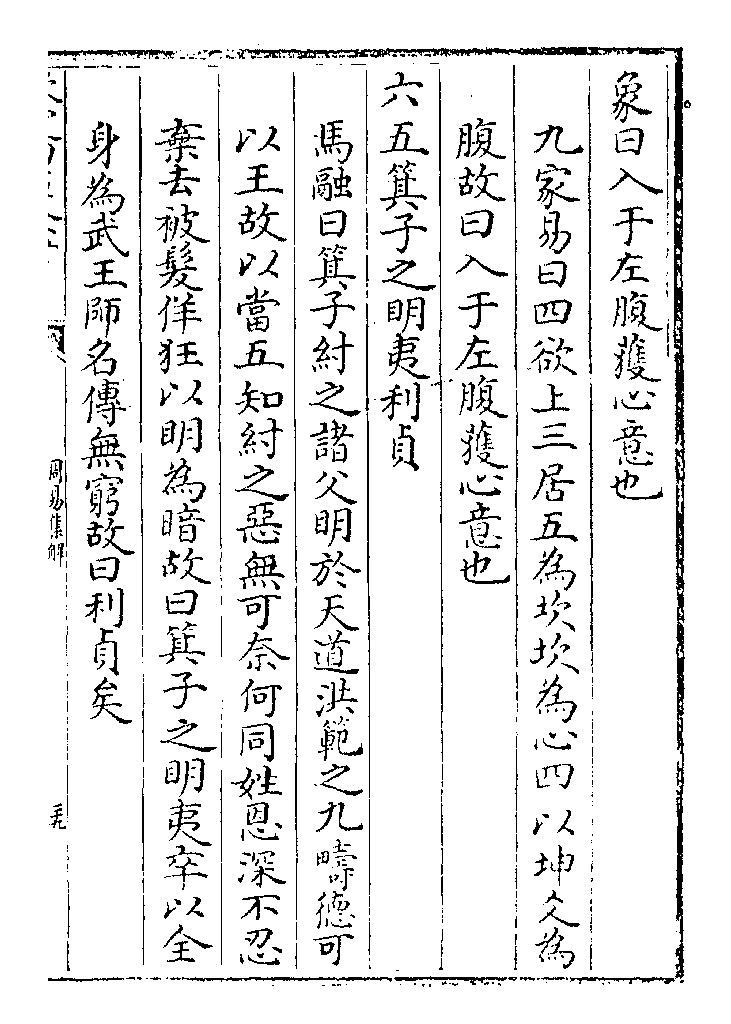 象曰入于左腹獲心意也
九家易曰四欲上三居五為坎坎為心四以坤爻為
腹故曰入于左腹獲心意也
六五箕子之明夷利貞
馬融曰箕子紂之諸父明於天道洪範之九疇德可
以王故以當五知紂之惡無可奈何同姓恩深不忍
棄去被髮佯狂以明為暗故曰箕子之明夷卒以全
身為武王師名傳無窮故曰利貞矣
周易集解